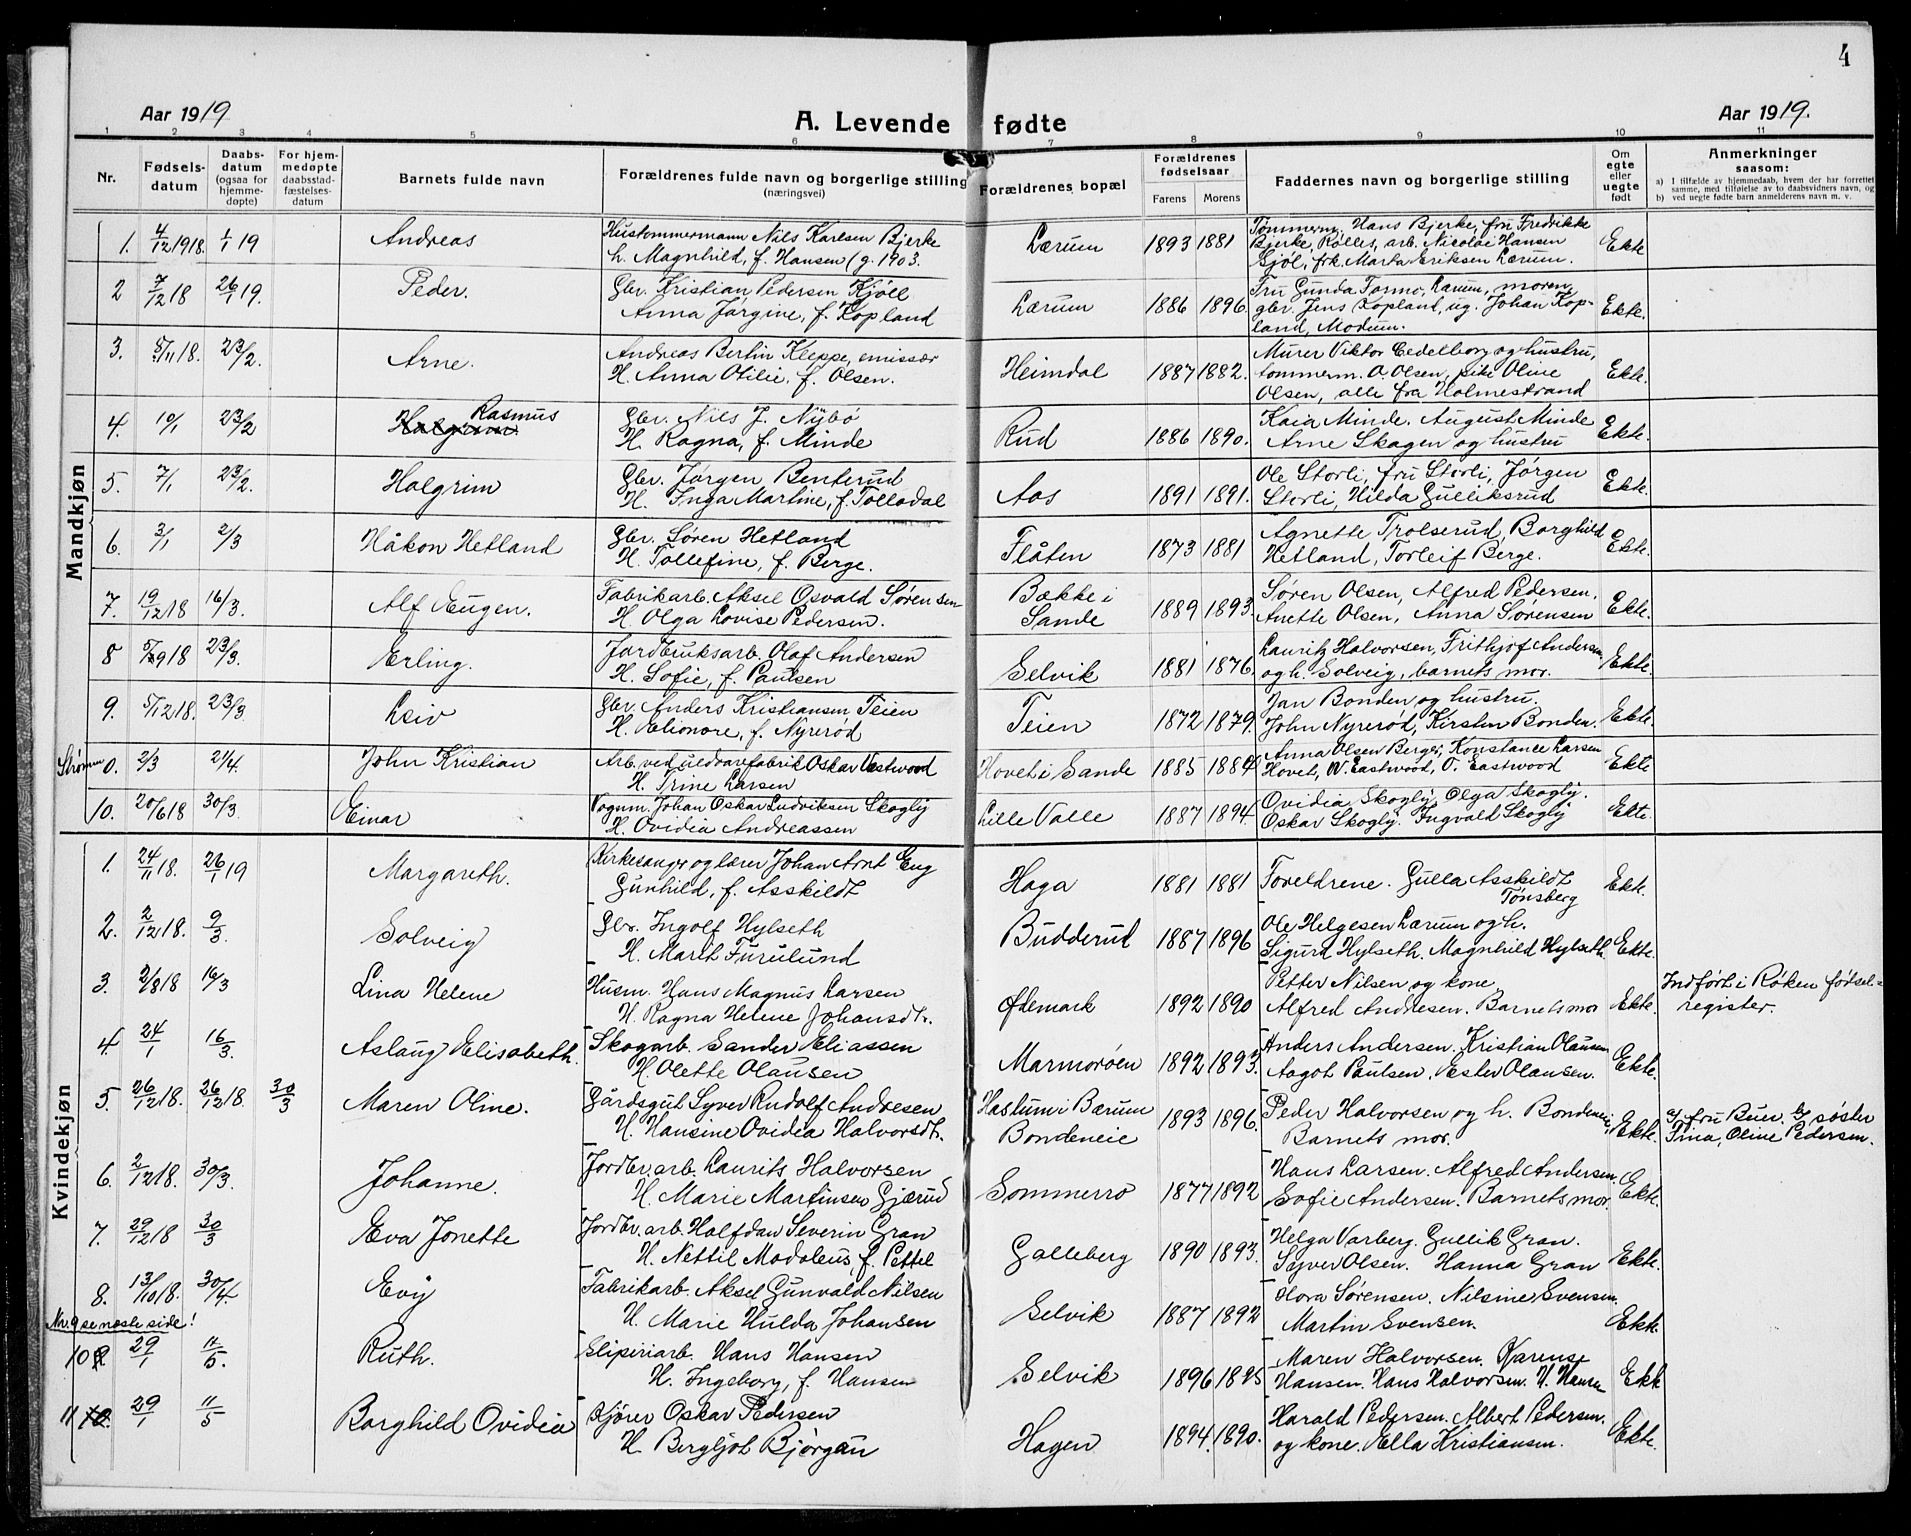 4
Aar 1919
A. Levende fødte
Aar 1919.
1 2 3 4 5 6 7 8 9 10 11
Nr.
Fødsels-
datum
Daabs-
datum
(ogsaa for
hjemme-
døpte)
For hjem-
medøpte
daabsstad-
fæstelses-
datum
Barnets fulde navn
Forældrenes fulde navn og borgerlige stilling
(næringsvei)
Forældrenes bopæl
Forældrenes
fødselsaar
Farens Morens
Faddernes navn og borgerlige stilling
Om
egte
eller
uegte
født
Anmerkninger
saasom:
a) I tilfælde av hjemmedaab, hvem der har forrettet
samme, med tilføielse av to daabsvidners navn, og
b) ved uegte fødte barn anmelderens navn m. v.
Mandkjøn
1. 4/12 1918. 1/1 19 Andreas
Hustømmermann Nils Karlsen Bjerke
h. Magnhild, f. Hansen (g. 1903.
Lærum 1893 1881
Tømmerm. Hans Bjerke, fru Fredrikke
Bjerke, Rølles, arb. Nicolai Hansen
Gjøl, frk. Marta Eriksen Lærum.
Ekte
2 7/12 18 26/1 19. Peder.
Gbr. Kristian Pedersen Kjøll
Anna Jørgine, f. Kopland
Lærum 1886 1896.
Fru Gunda Tormo, Lærum, moren,
gbr. Jens Kopland, ug. Johan Kop-
land, Modum.
Ekte.
3. 5/11 18. 23/2. Arne.
Andreas Bertin Kleppe, emissær
H. Anna Otilie, f. Olsen.
Heimdal 1887 1882.
Murer Viktor Cedelborg og hustru,
tømmerm. O. Olsen, pike Oline
Olsen, alle fra Holmestrand
Ekte.
4. 10/1 23/2 Rasmus
Halgrim
Gbr. Nils J. Nybø
H. Ragna, f. Minde
Rud 1886 1890.
Kaia Minde. August Minde
Arne Skagen og hustru
Ekte.
5. 7/1 23/2. Halgrim
Gbr. Jørgen Benterud
H. Inga Martine, f. Tollodal
Aos 1891 1891.
Ole Storli, fru Storli, Jørgen
Storli, Hilda Gulliksrud
Ekte.
6. 3/1 2/3 Håkon Hetland
Gbr. Søren Hetland
H. Tollefine, f. Berge.
Flåten 1873 1881
Agnette Trolserud, Borghild
Hetland, Torleif Berge.
Ekte.
7. 19/12 18 16/3. Alf Eugen.
Fabrikarb. Aksel Osvald Sørensen
H. Olga Lovise Pedersen.
Bække i
Sande
1889 1893.
Søren Olsen, Alfred Pedersen,
Anette Olsen, Anna Sørensen
Ekte.
8 5/9 18 23/3. Erling.
Jordbruksarb. Olaf Andersen
H. Sofie, f. Paulsen
Selvik 1881 1876.
Lauritz Halvorsen, Frithjof Andersen
og h. Solveig, barnets mor.
Ekte.
9. 5/12 18. 23/3 Leiv
Gbr. Anders Kristiansen Teien
H. Elionore, f. Nyrerød
Teien 1872 1879.
Jan Bonden og hustru.
John Nyrerød, Kirsten Bonden.
Ekte.
Strømm 0. 2/3 21/4. John Kristian
Arb. ved uldvarefabrik Oskar Vestwood
H. Trine Larsen
Hovet i Sande 1885 1884
Anna Olsen Berger, Konstance Larsen
Hovet, W. Eastwood, O. Eastwood
Ekte
10. 20/6 18 30/3. Einar
Vognm. Johan Oskar Ludviksen Skogly
H. Ovidia Andreassen
Lille Valle 1887 1894.
Ovidia Skogly, Olga Skogly.
Oskar Skogly. Ingvald Skogly
Ekte.
Kvindekjøn
1. 24/11 18. 26/1 19 Margareth.
Kirkesanger og lærer Johan Arnt Eng
Gunhild, f. Asskildt
Haga 1881 1881
Foreldrene. Gulla Asskildt
Tønsberg
Ekte.
2. 2/12 18. 9/3. Solveig
Gbr. Ingolf Hylseth
H. Marit Furulund
Budderud 1887 1896
Ole Helgesen Lærum og h.
Sigurd Hylseth. Magnhild Hylseth.
Ekte.
3. 2/8 18 16/3 Lina Helene
Husm. Hans Magnus Larsen
H. Ragna Helene Johansdt.
Ødemark 1892 1890
Petter Nilsen og kone
Alfred Andresen. Barnets mor
Ekte.
Indført i Røken fødsel-
register.
4. 24/1 16/3. Aslaug Elisabeth.
Skogarb. Sander Eliassen
H. Olette Olausen
Marmorøen 1892 1893.
Anders Andersen. Kristian Olausen
Aagot Paulsen. Ester Olausen.
Ekte.
5. 26/12 18. 26/12 18. 30/3 Maren Oline.
Gårdsgut Syver Rudolf Andresen
H. Hansine Ovidia Halvorsdt.
Haslum i Bærum
Bondeneie
1893 1896.
Peder Halvorsen og h. Bondeneie
Barnets mor.
Ekte.
a/ fru Buer. b/ søster
Tina, Oline Pedersen.
6. 2/12 18. 30/3. Johanne.
Jordbr. arb. Laurits Halvorsen
H. Marie Martinsen Gjærud
Sommerro 1877 1892
Hans Larsen. Alfred Andersen.
Sofie Andersen. Barnets mor.
Ekte.
7. 29/12 18 30/3 Eva Jonette
Jordbr. arb. Halfdan Severin Gran
H. Nettil Madaleus, f. Pettil
Galleberg 1890 1893.
Helga Varberg. Gullik Gran.
Syver Olsen. Hanna Gran
Ekte.
8. 13/10 18. 30/4. Evy
Fabrikarb. Aksel Gunvald Nilsen
H. Marie Hulda Johansen
Selvik 1887 1892
Hora Sørensen. Nilsine Svensen.
Martin Svensen.
Ekte.
Nr. 9 se næste side!
10 29/1 11/5. Ruth.
Slipiriarb. Hans Hansen
H. Ingeborg, f. Hansen
Selvik 1896 1895
Maren Halvorsen. Karense
Hansen. Hans Halvorsen. H. Hansen
Ekte
11 29/1 11/5 Borghild Ovidia
Kjører Oskar Pedersen
H. Bergljot Bjørgan
Hagen 1894. 1890.
Harald Pedersen. Albert Pedersen.
og kone. Ella Kristiansen.
Ekte.